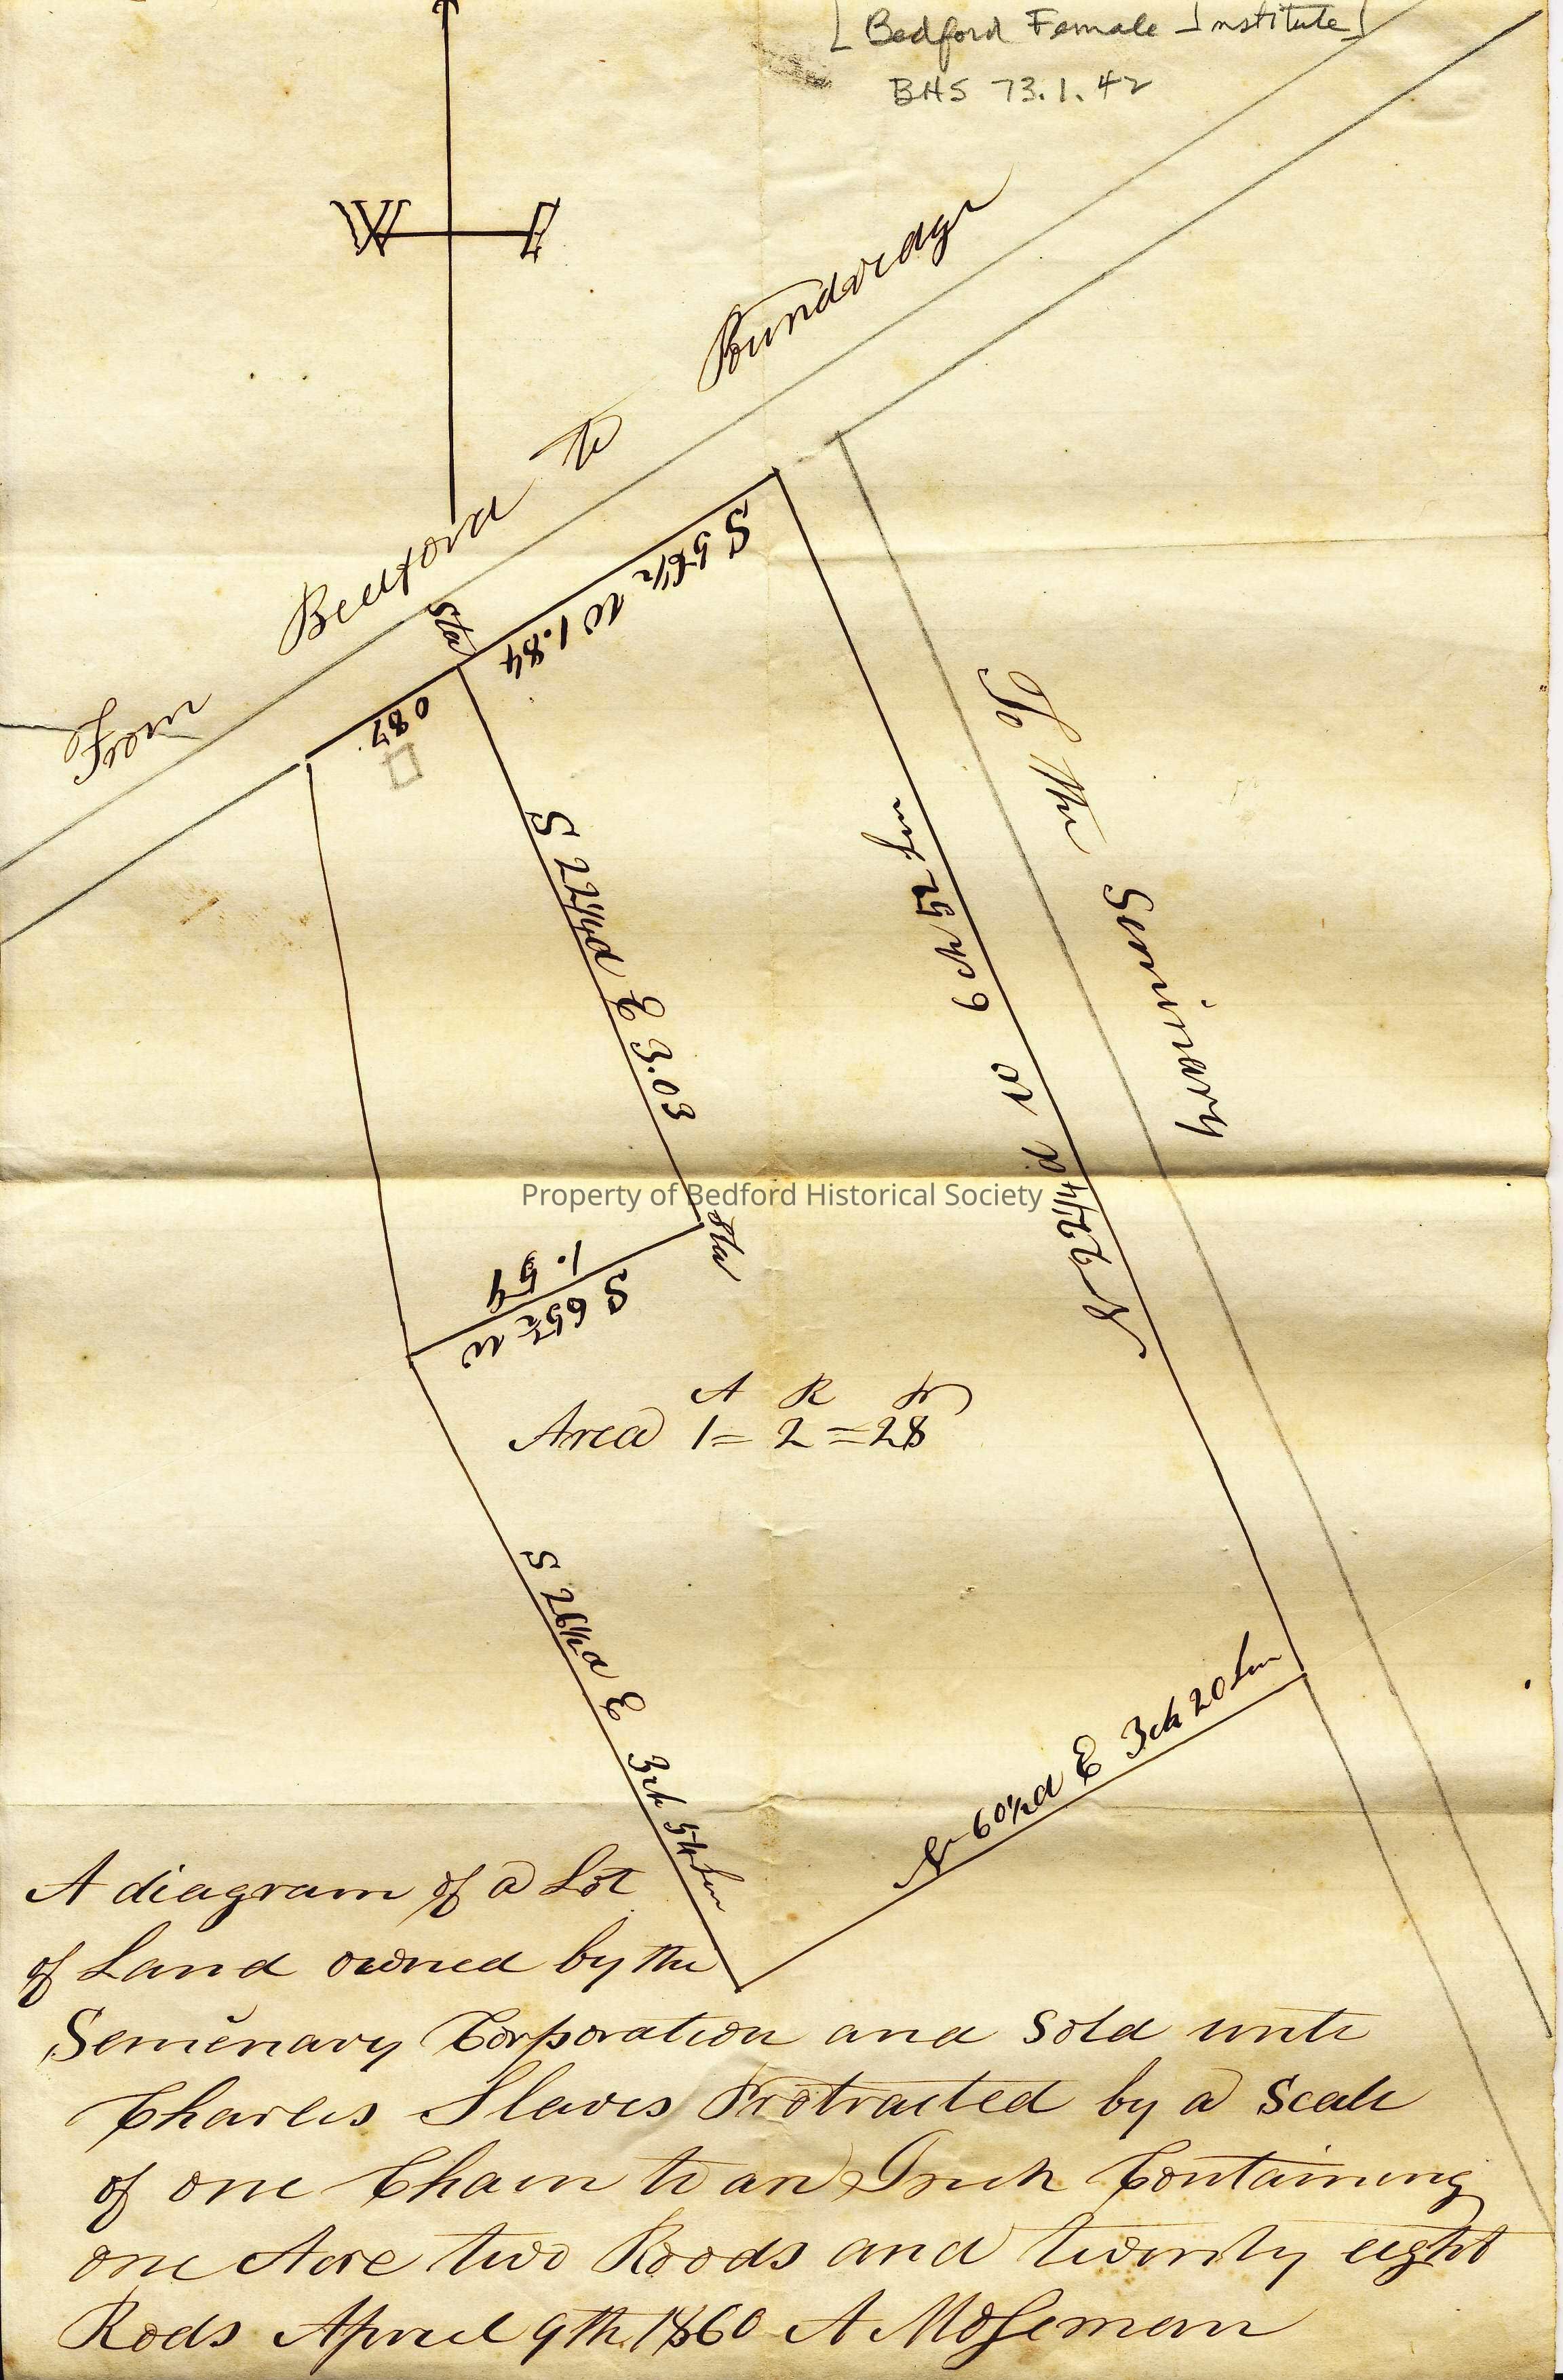 [Bedford Female Institute]
BHS 73.1.42
W E
From Bedford to Poundridge
Sta
S 56½ W 1.84
0 87
S 22¼d E 3.03
To the Seminary
N 22¼d W 6 ch 52 Lin
Property of Bedford Historical Society
Sta
1.54
S 65½ W
A R r
Area 1 = 2 = 28
S 26½d E 3ch 54 Lin
N 60½d E 3ch 20 Lin
A diagram of a Lot
of Land owned by the
Semenary Corporation and Sold unto
Charles Slaves Protracted by a Scale
of one Chain to an Inch Containing
one Acre two Roods and twenty eight
Rods April 9th 1860 A Moseman